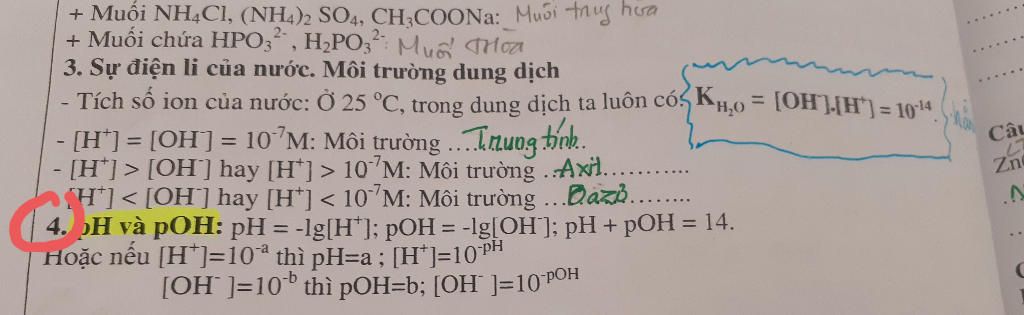 + Muối NH₄Cl, (NH₄)₂ SO₄, CH₃COONa: Muối trung hòa
+ Muối chứa HPO₃²⁻, H₂PO₃²⁻: Muối
3. Sự điện li của nước. Môi trường dung dịch
- Tích số ion của nước: Ở 25 °C, trong dung dịch ta luôn có: K_H₂O = [OH⁻].[H⁺] = 10⁻¹⁴.
- [H⁺] = [OH⁻] = 10⁻⁷M: Môi trường ....Trung tính.
- [H⁺] > [OH⁻] hay [H⁺] > 10⁻⁷M: Môi trường ..Axit...........
[H⁺] < [OH⁻] hay [H⁺] < 10⁻⁷M: Môi trường ...Bazơ........
4. pH và pOH: pH = -lg[H⁺]; pOH = -lg[OH⁻]; pH + pOH = 14.
Hoặc nếu [H⁺]=10⁻ᵃ thì pH=a ; [H⁺]=10⁻ᵖᴴ
[OH⁻ ]=10⁻ᵇ thì pOH=b; [OH⁻ ]=10⁻ᵖᴼᴴ
Câu
Zn